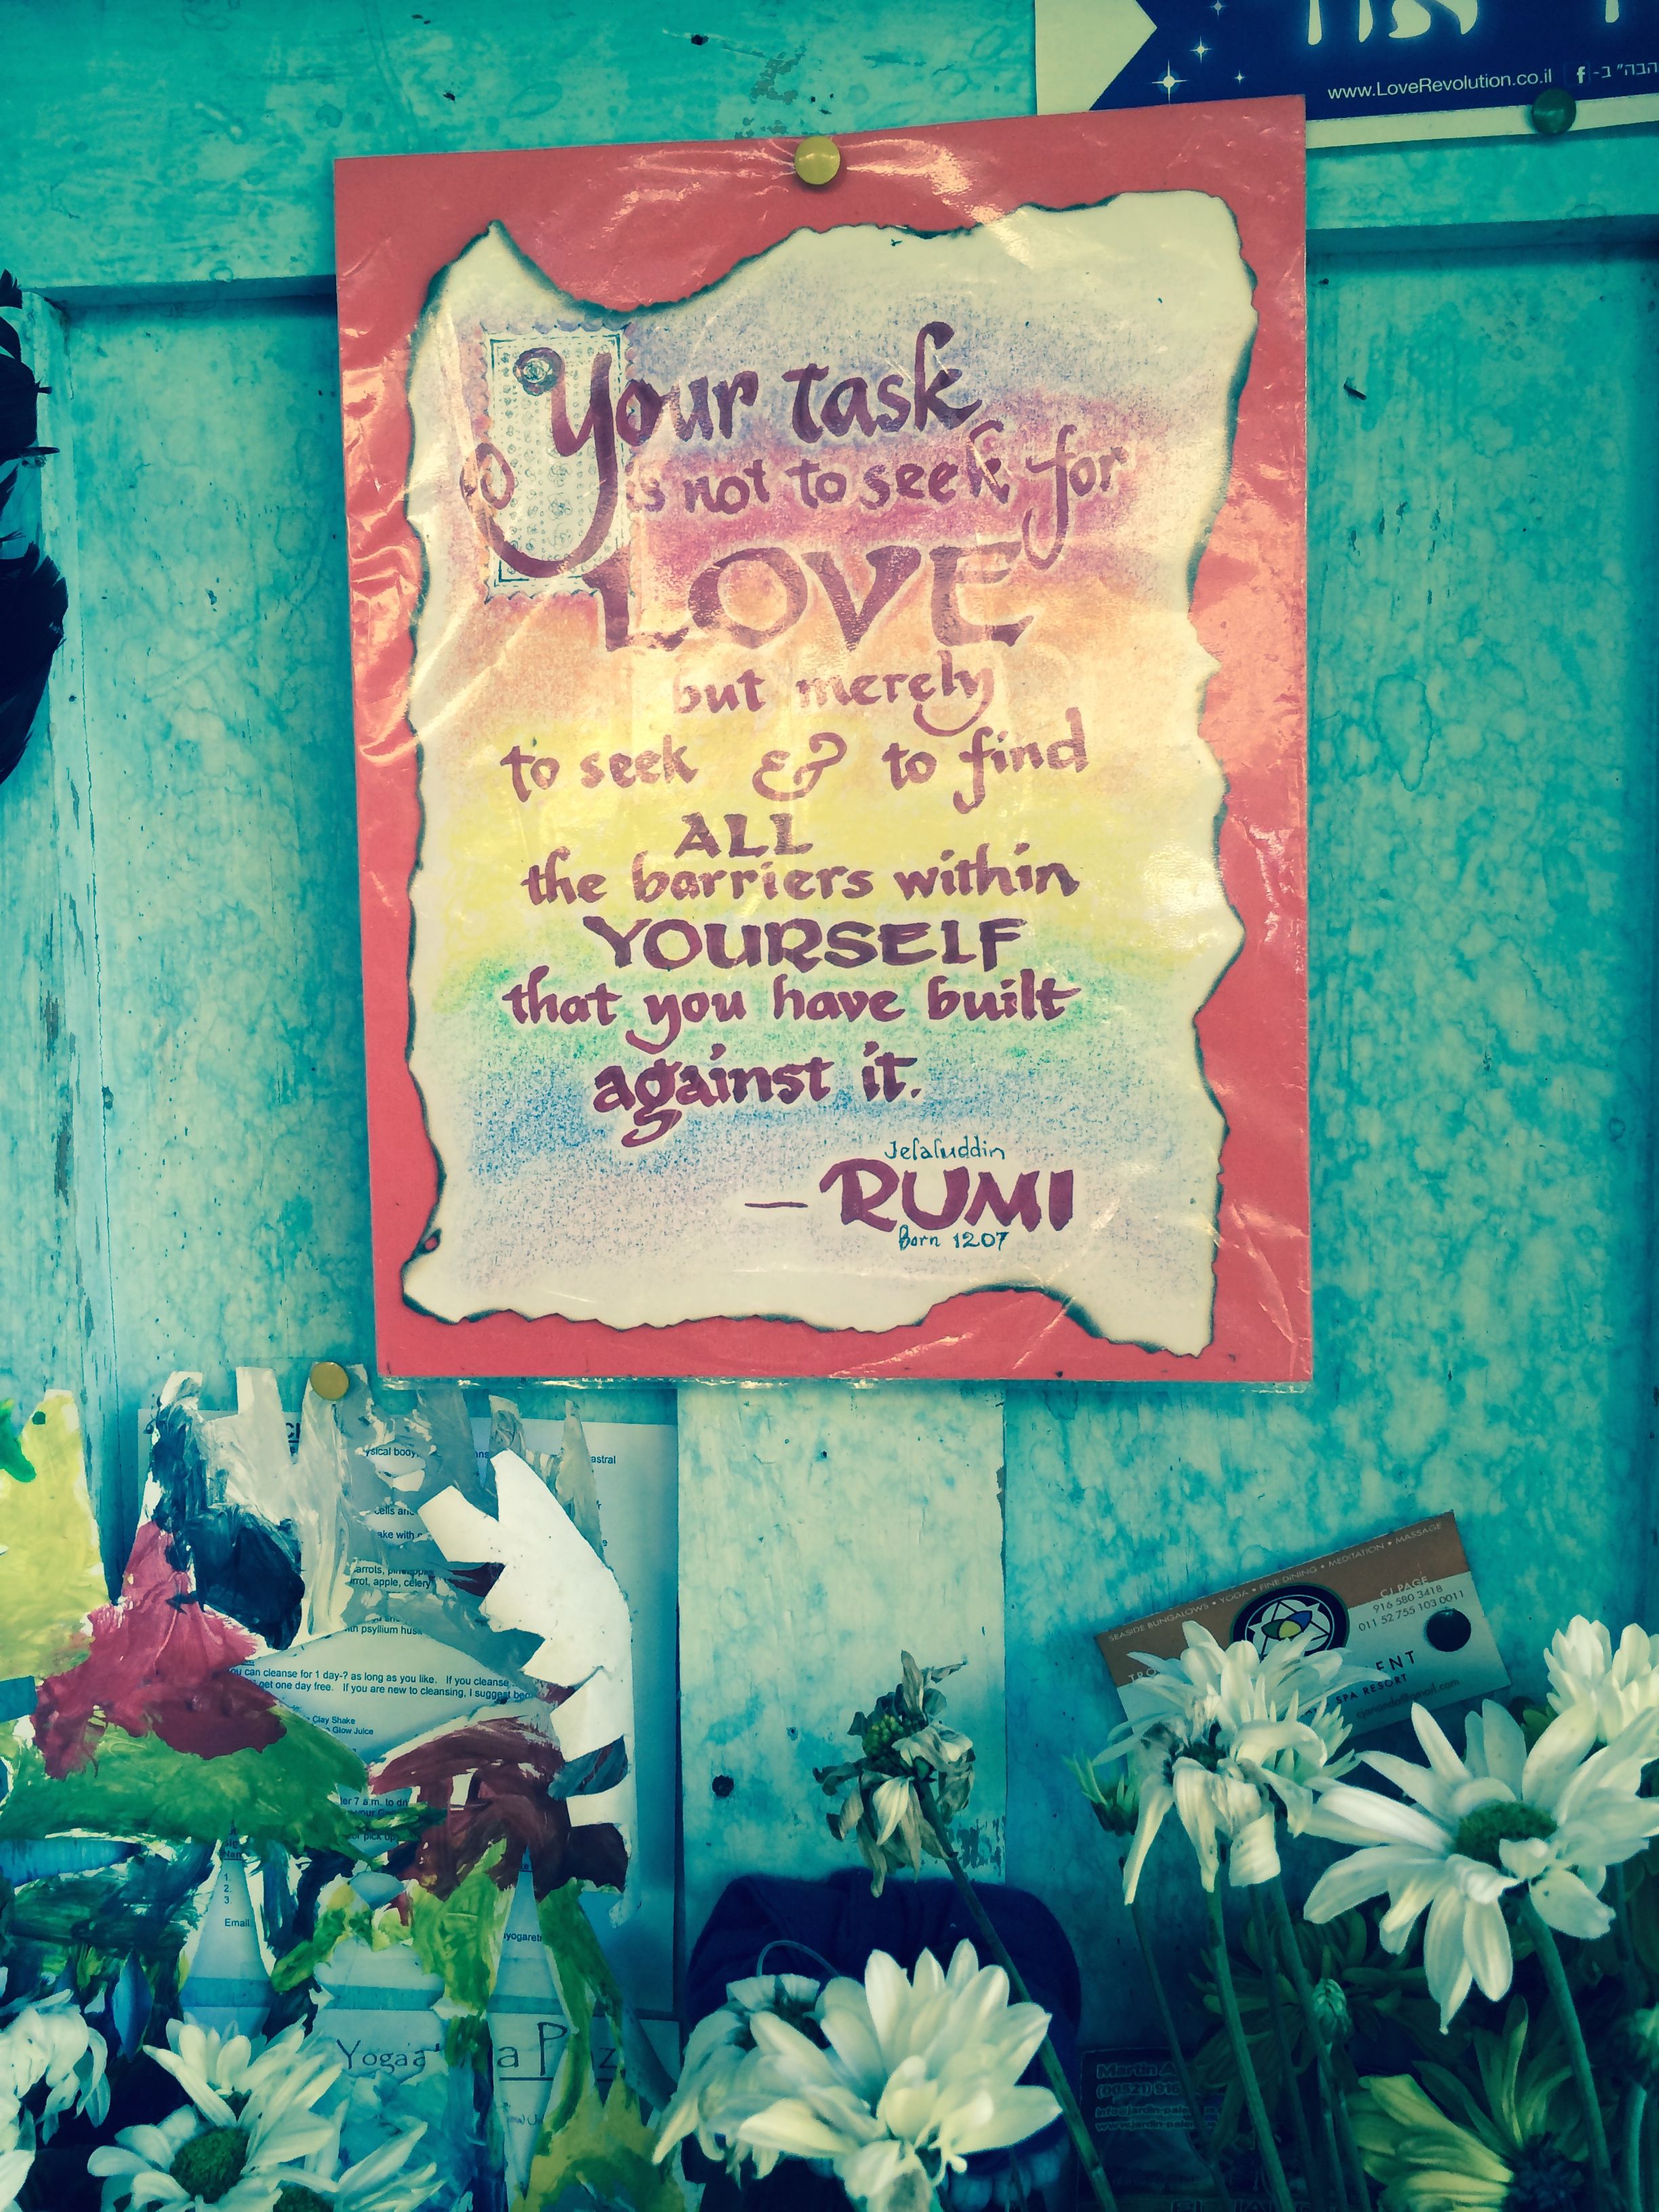 www.LoveRevolution.co.il
Your task
is not to seek for
LOVE
but merely
to seek & to find
ALL
the barriers within
YOURSELF
that you have built
against it.
Jelaluddin
— RUMI
Born 1207
astral
arrot, apple, celery
psyllium
you can cleanse for 1 day-? as long as you like. If you cleanse
get one day free. If you are new to cleansing, I suggest
Clay Shake
Glow Juice
7 a.m. to
1.
2.
3
Email
SEASIDE BUNGALOWS • YOGA • FINE DINING • MEDITATION • MASSAGE
CJ PAGE
916 580 3418
011 52 755 103 0011
SPA RESORT
Martin